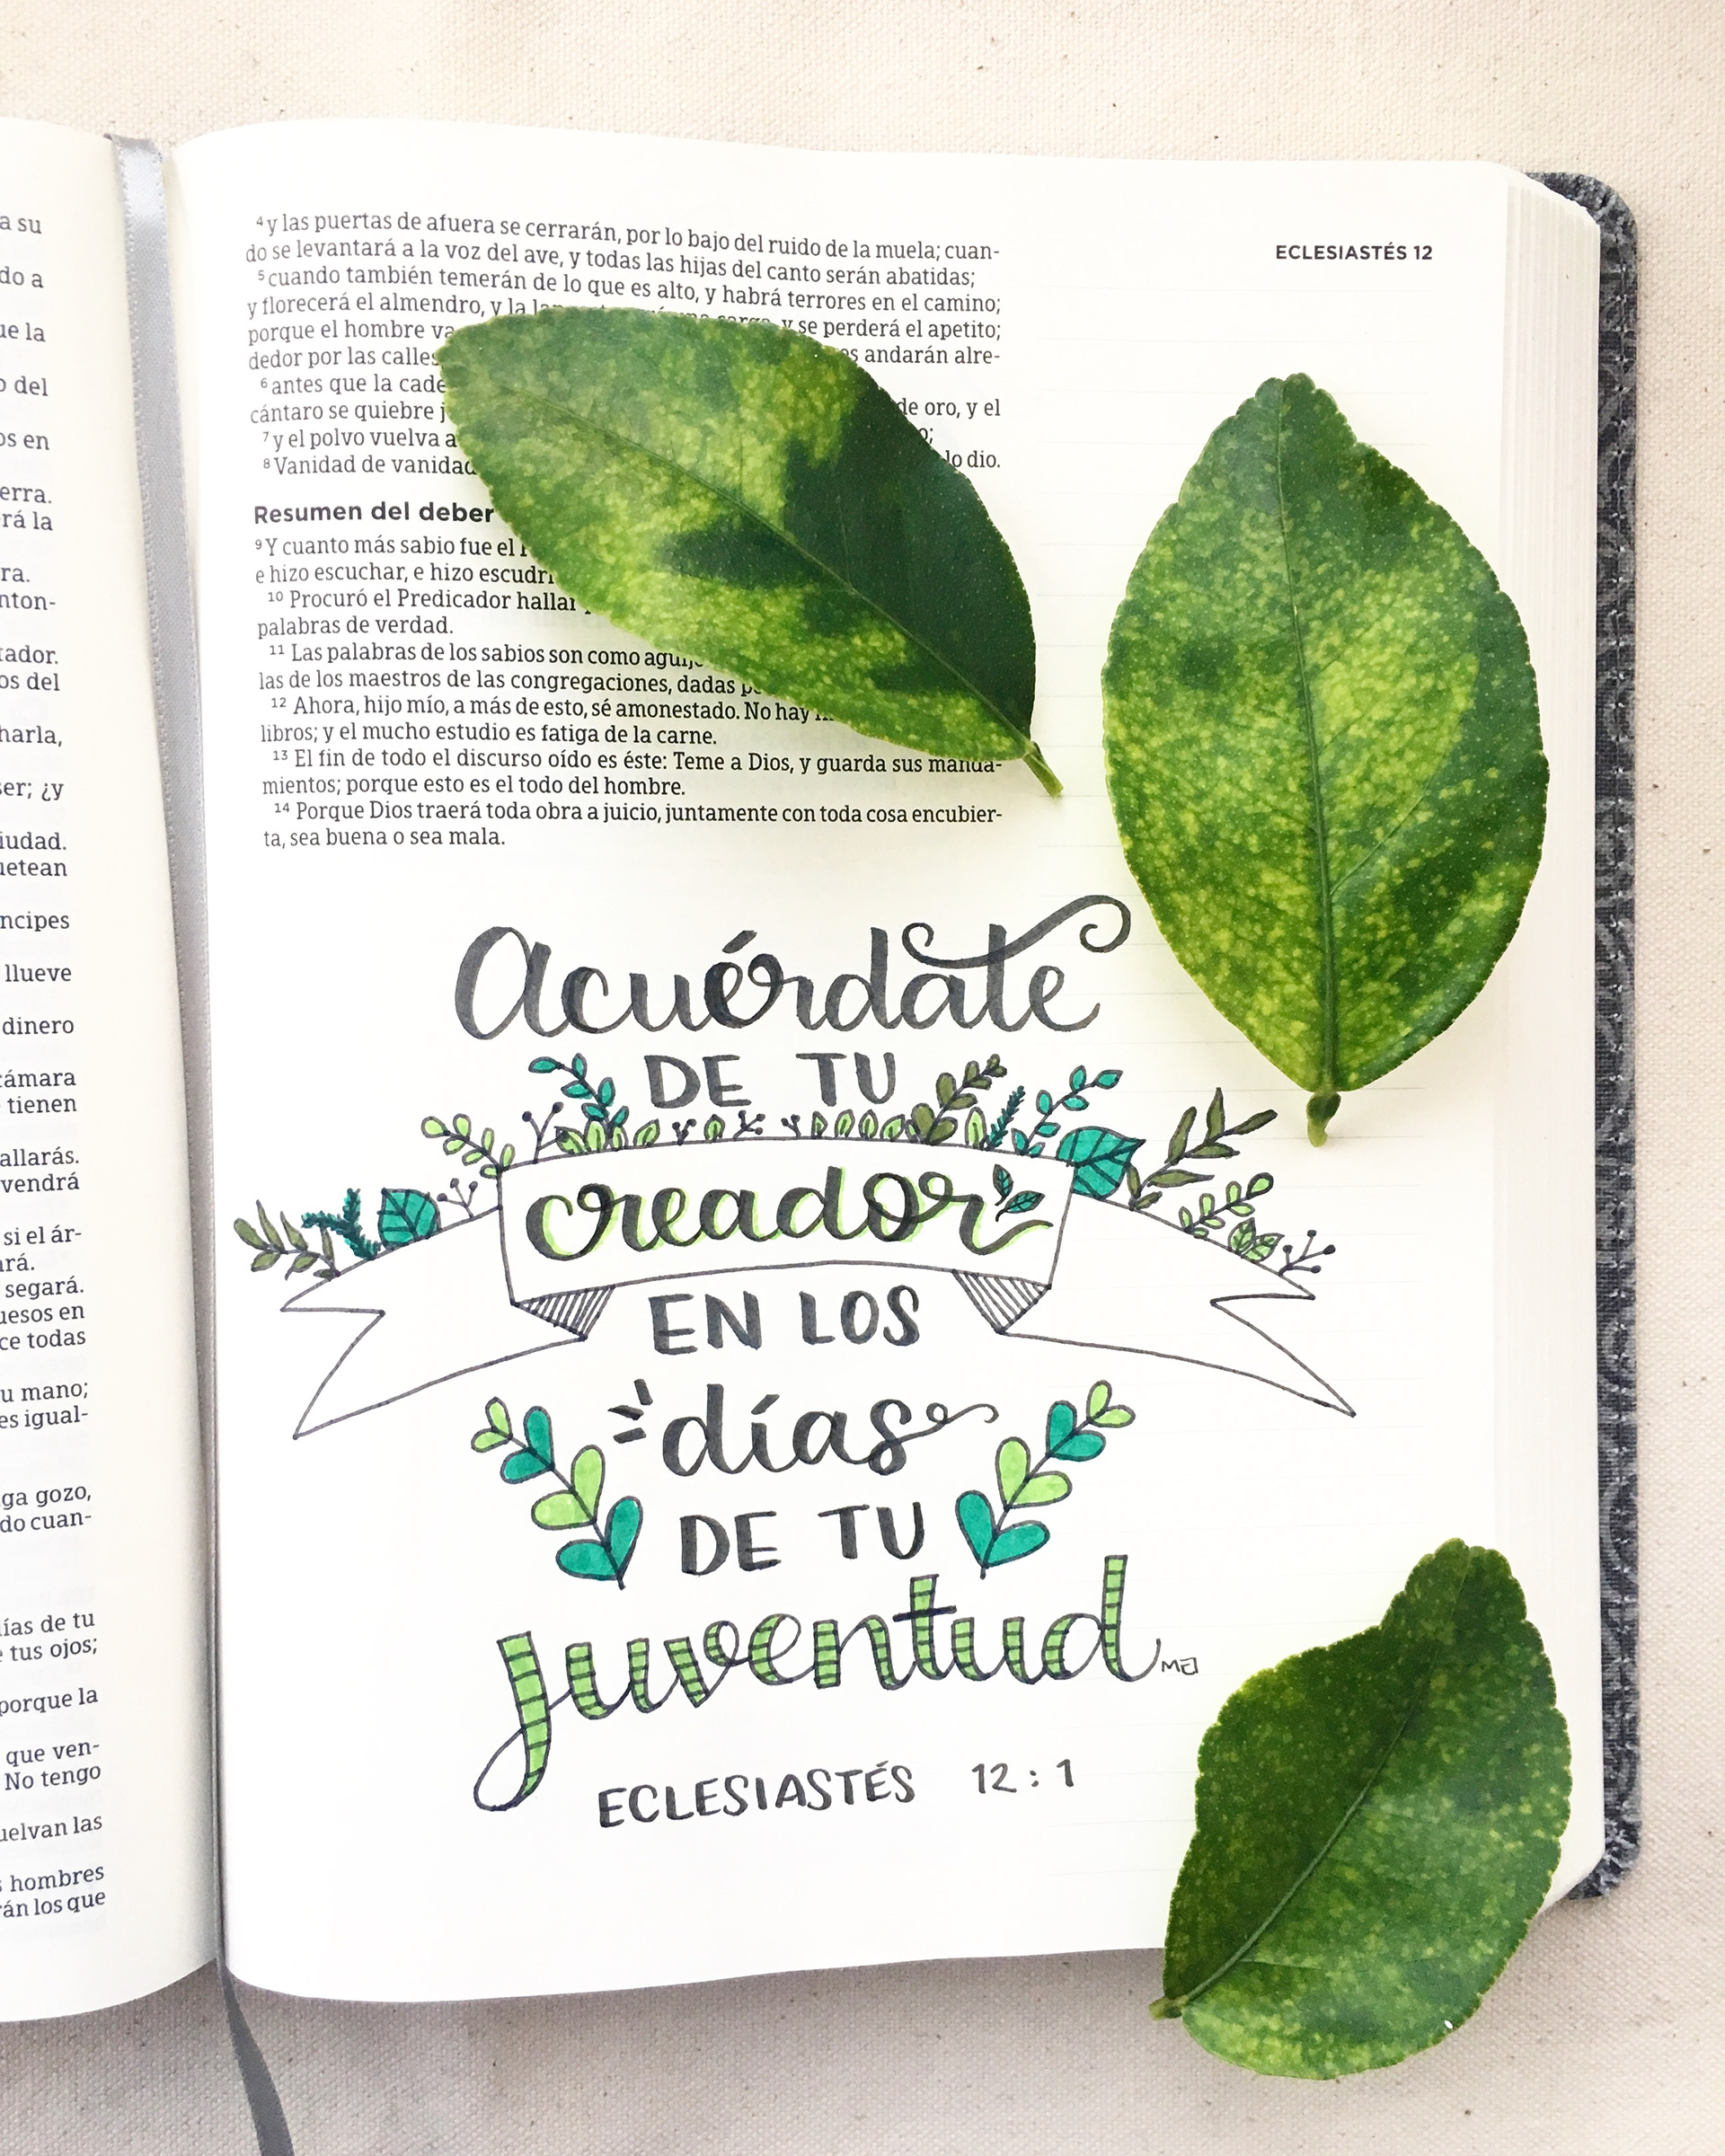 a su
do a
ue la
o del
os en
erra.
rá la
ra.
nton-
ador.
os del
harla,
ser; ¿y
iudad.
uetean
ncipes
llueve
dinero
cámara
tienen
allarás.
vendrá
si el ár-
ará.
segará.
uesos en
ce todas
u mano;
es igual-
ga gozo,
do cuan-
ías de tu
e tus ojos;
porque la
que ven-
No tengo
uelvan las
s hombres
rán los que
ECLESIASTÉS 12
4 y las puertas de afuera se cerrarán, por lo bajo del ruido de la muela; cuan-
do se levantará a la voz del ave, y todas las hijas del canto serán abatidas;
5 cuando también temerán de lo que es alto, y habrá terrores en el camino;
y florecerá el almendro, y la y se perderá el apetito;
porque el hombre va andarán alre-
dedor por las calles
6 antes que la cade de oro, y el
cántaro se quiebre j
7 y el polvo vuelva a lo dio.
8 Vanidad de vanidad
Resumen del deber
9 Y cuanto más sabio fue el
e hizo escuchar, e hizo escudri
10 Procuró el Predicador hallar
palabras de verdad.
11 Las palabras de los sabios son como aguij
las de los maestros de las congregaciones, dadas
12 Ahora, hijo mío, a más de esto, sé amonestado. No hay
libros; y el mucho estudio es fatiga de la carne.
13 El fin de todo el discurso oído es éste: Teme a Dios, y guarda sus manda-
mientos; porque esto es el todo del hombre.
14 Porque Dios traerá toda obra a juicio, juntamente con toda cosa encubier-
ta, sea buena o sea mala.
acuérdate
DE TU
creador
EN LOS
días
DE TU
juventud
MJ
ECLESIASTÉS 12:1